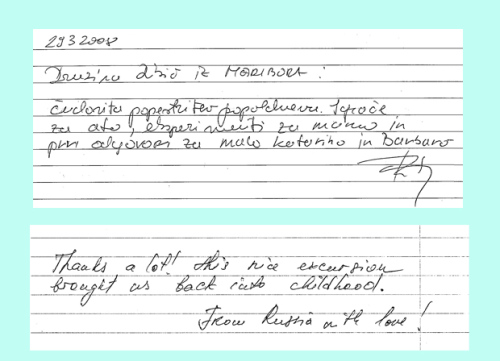 29 3 2008
Družina iz MARIBORA:
čudovita popestritev popoldneva. Igrače
za ata, eksperimenti za mamo in
prvi odgovori za malo Katarino in Barbaro
Thanks a lot! this nice excursion
brought us back into childhood.
From Russia with love!